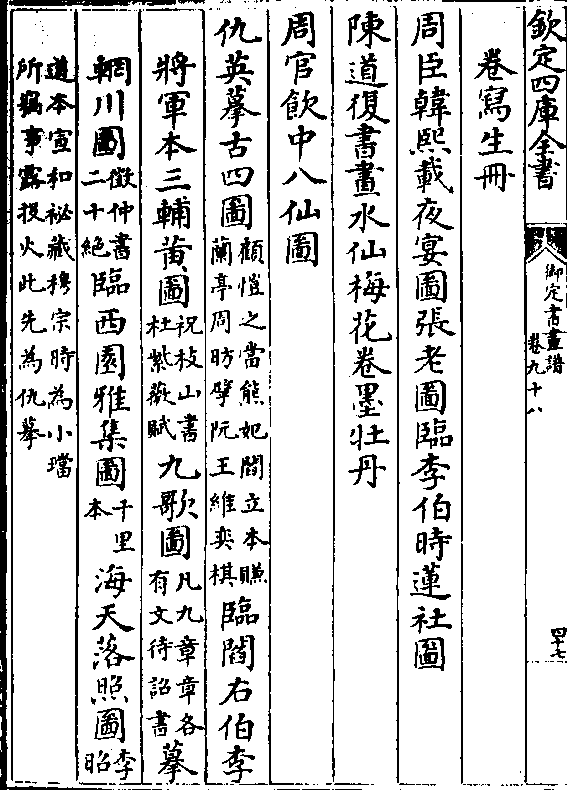 欽定四庫全書
御定書畫譜
卷九十八
四十七
卷寫生冊
周臣韓熙載夜宴圖張老圖臨李伯時蓮社圖
陳道復書畫水仙梅花卷墨牡丹
周官飲中八仙圖
仇英摹古四圖顧愷之當熊妃閻立本賺蘭亭周昉擘阮王維奕棋臨閻右伯李
將軍本三輔黃圖祝枝山書杜紫薇賦九歌圖凡九章章各有文待詔書摹
輞川圖徵仲書二十絕臨西園雅集圖千里本海天落照圖李昭
道本宣和祕藏穆宗時為小璫所竊事露投火此先為仇摹